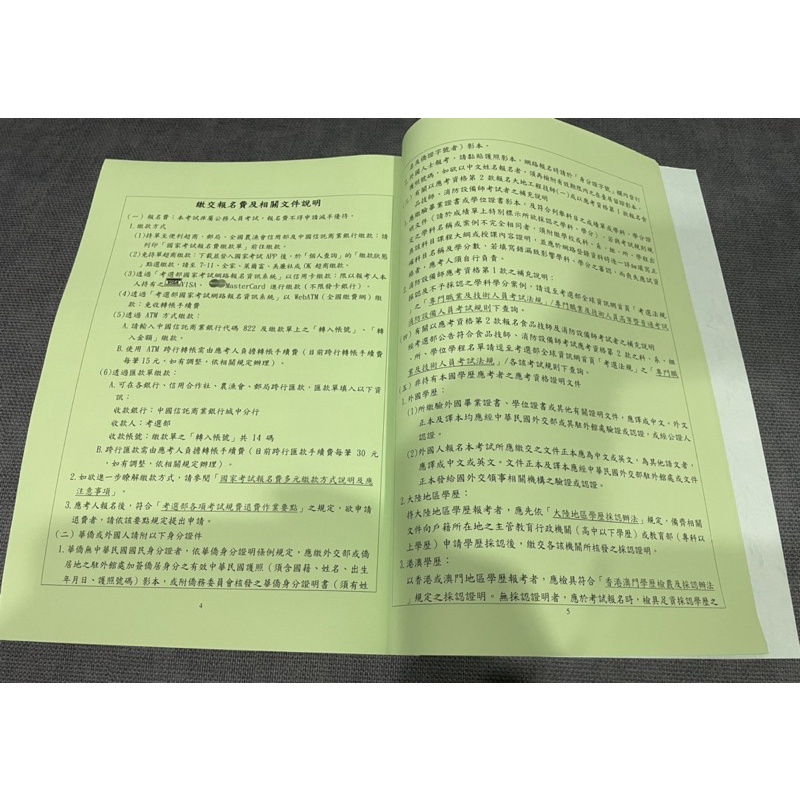 繳交報名費及相關文件說明
(一)報名費：本考試非屬公務人員考試，報名費不得申請減半優待。
1.繳款方式
(1)持單至便利超商、郵局、全國農漁會信用部及中國信託商業銀行繳款：請
列印「國家考試報名費繳款單」前往繳款。
(2)免持單超商繳款：下載並登入國家考試 APP 後，於「個人查詢」的「繳款狀態
」點選繳款，請至 7-11、全家、萊爾富、美廉社或 OK 超商繳款。
(3)透過「考選部國家考試網路報名資訊系統」以信用卡繳款：限以報考人本
人持有之VISA、MasterCard 進行繳款(不限發卡銀行)。
(4)透過「考選部國家考試網路報名資訊系統」以 WebATM(全國繳費網)繳
款：免收轉帳手續費
(5)透過 ATM 方式繳款：
A.請輸入中國信託商業銀行代碼 822 及繳款單上之「轉入帳號」、「轉
入金額」繳款。
B.使用 ATM 跨行轉帳需由應考人負擔轉帳手續費(目前跨行轉帳手續費
每筆 15 元，如有調整，依相關規定辦理)。
(6)透過匯款單繳款：
A.可在各銀行、信用合作社、農漁會、郵局跨行匯款，匯款單填入以下資
訊：
收款銀行：中國信託商業銀行城中分行
收款人：考選部
收款帳號：繳款單之「轉入帳號」共 14 碼
B.跨行匯款需由應考人負擔轉帳手續費(目前跨行匯款手續費每筆 30 元
，如有調整，依相關規定辦理)。
2.如欲進一步瞭解繳款方式，請參閱「國家考試報名費多元繳款方式說明及應
注意事項」。
3.應考人報名後，符合「考選部各項考試規費退費作業要點」之規定，欲申請
退費者，請依該要點規定提出申請。
(二)華僑或外國人請附以下身分證件
1.華僑無中華民國國民身分證者，依華僑身分證明條例規定，應繳外交部或僑
居地之駐外館處加簽僑居身分之有效中華民國護照(須含國籍、姓名、出生
年月日、護照號碼)影本，或附僑務委員會核發之華僑身分證明書(須有姓
4
影本。
消防設備師考試者之補充說明
消防設備師應考資格第 1 款之補充說明：
採認及不予採認之學科學分案例，請逕至考選部全球資訊網首頁「考選法規
」之「專門職業及技術人員考試法規」/專門職業及技術人員高等暨普通考試
消防設備人員考試規則下查詢。
(四)有關以應考資格第 2 款報名食品技師及消防設備師考試者之補充說明
經考選部公告符合食品技師、消防設備師考試應考資格第 2 款之科、系、組
、所、學位學程名單請逕至考選部全球資訊網首頁「考選法規」之「專門職
業及技術人員考試法規」/各該考試規則下查詢。
(五)非持有本國學歷應考者之應考資格證明文件
1.外國學歷：
(1)所繳驗外國畢業證書、學位證書或其他有關證明文件，應譯成中文。外文
正本及譯本均應經中華民國外交部或其駐外館處驗證或認證，或經公證人
認證。
(2)外國人報名本考試所應繳交之文件正本應為中文或英文，為其他語文者，
應譯成中文或英文。文件正本及譯本應經中華民國外交部駐外館處或文件
正本發給國外交領事相關機構之驗證或認證。
2.大陸地區學歷：
持大陸地區學歷報考者，應先依「大陸地區學歷採認辦法」規定，備齊相關
文件向戶籍所在地之主管教育行政機關(高中以下學歷)或教育部(專科以
上學歷)申請學歷採認後，繳交各該機關所核發之採認證明。
3.港澳學歷：
以香港或澳門地區學歷報考者，應檢具符合「香港澳門學歷檢覈及採認辦法
」規定之採認證明。無採認證明者，應於考試報名時，檢具足資採認學歷之
5